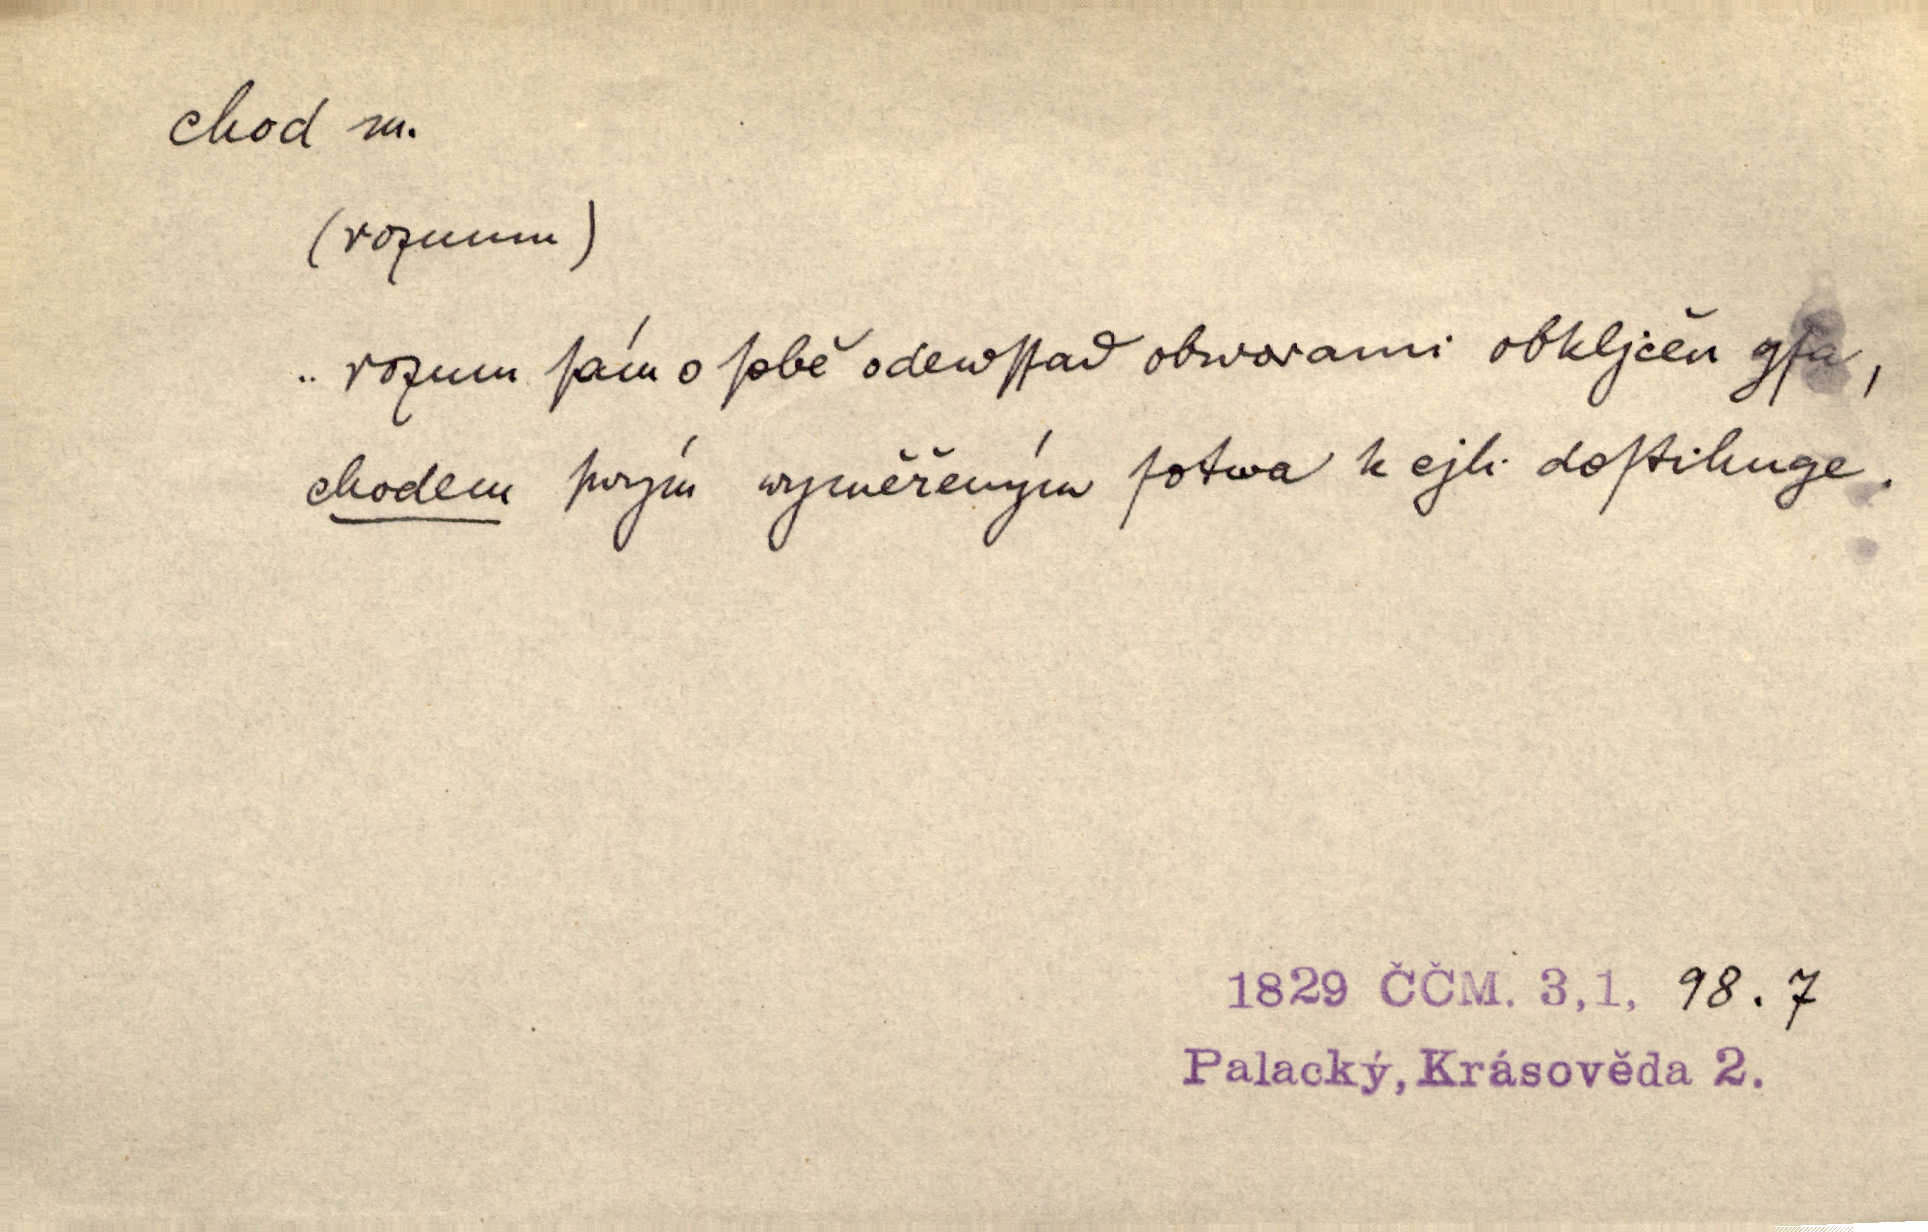 chod m.
(rozumu)
.. rozum ſám o ſobě odewſſad obworami obkljčen gſa,
chodem ſwým wyměřeným ſotwa k cjli doſtihuge.
1829 ČČM. 3,1, 98. 7
Palacký, Krásověda 2.